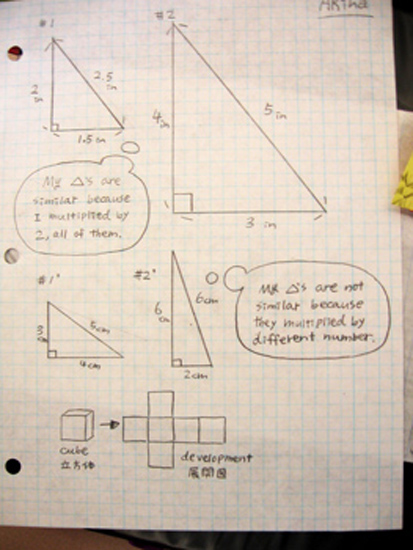 #1
#2
2
in
2.5
in
1.5 in
4in
5 in
3 in
My △'s are
similar because
I multiplied by
2, all of them.
#1'
#2'
3
cm
5cm
4cm
6
cm
6cm
2cm
My △'s are not
similar because
they multiplied by
different number.
cube
立方体
development
展開図